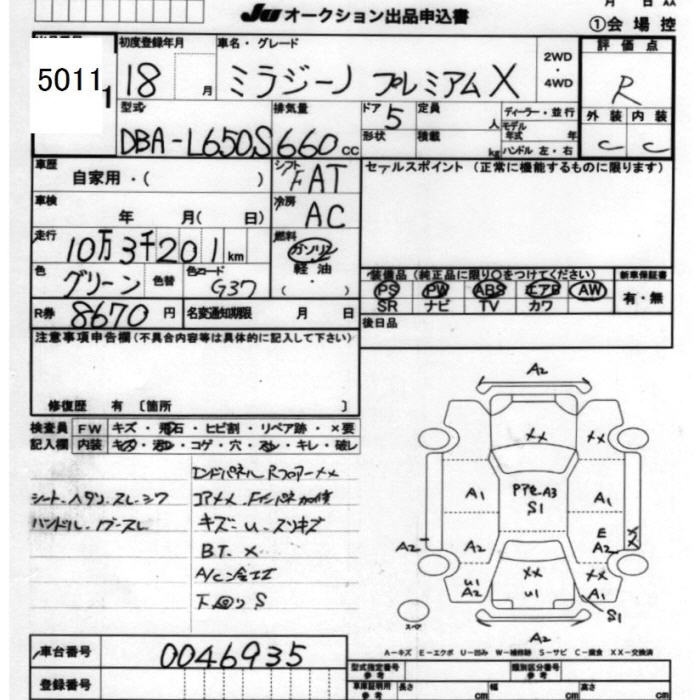 月 日 AA
JU オークション出品申込書
①会場控
5011
1
初度登録年月
18 月
車名・グレード
ミラジーノ プレミアムX
2WD
・
4WD
評価点
R
型式
DBA-L650S
排気量
660 cc
ドア
5
定員
人
ディーラー・並行
モデル年式 年
外装 内装
C C
形状
積載
kg
ハンドル 左・右
車歴
自家用・( )
シフト
FAT
セールスポイント (正常に機能するものに限ります)
車検
年 月( 日)
冷房
AC
走行
10万3千201km
燃料
ガソリン
軽油
( ・ )
色
グリーン
色替
色コード
G37
装備品(純正品に限り○をつけてください)
新車保証書
PS PW ABS エアB AW
SR ナビ TV カワ
有・無
R券 8670 円
名変通知期限 月 日
後日品
注意事項申告欄(不具合内容等は具体的に記入して下さい)
修復歴 有 〔箇所 〕
検査員 FW キズ・飛石・ヒビ割・リペア跡・×要
記入欄 内装 キズ・汚れ・コゲ・穴・スレ・キレ・破レ
エンドパネル RフロアーXX
シート・ヘタリ・スレ・シワ
ハンドル
キズ・U・スリキズ
BT. X
下回りS
A2
XX XX
A1 PアセA3 A1
S1
E XX
A2 A2 A2
U1 XX XX
A2 U1 A1
S1
スペア
A2
A=キズ E=エクボ U=凹み W=補修跡 S=サビ C=腐食 XX=交換済
車台番号 0046935
登録番号
型式指定番号
参考
類別区分番号
参考
車庫証明用
参考
長さ cm 幅 cm 高さ cm